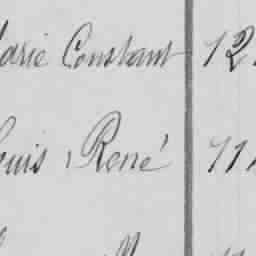 arie Constant 12
ouis, René 11